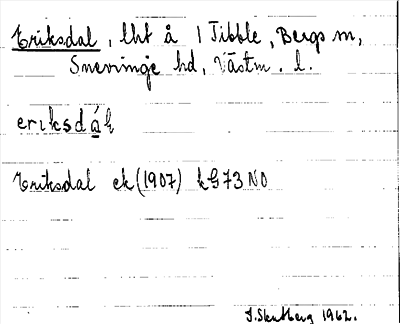 Eriksdal, lht å 1 Tibble, Bergs sn,
Snevringe hd, Västm. l.
eriksdáɫ
Eriksdal ek (1907) kG73 NO
1962.